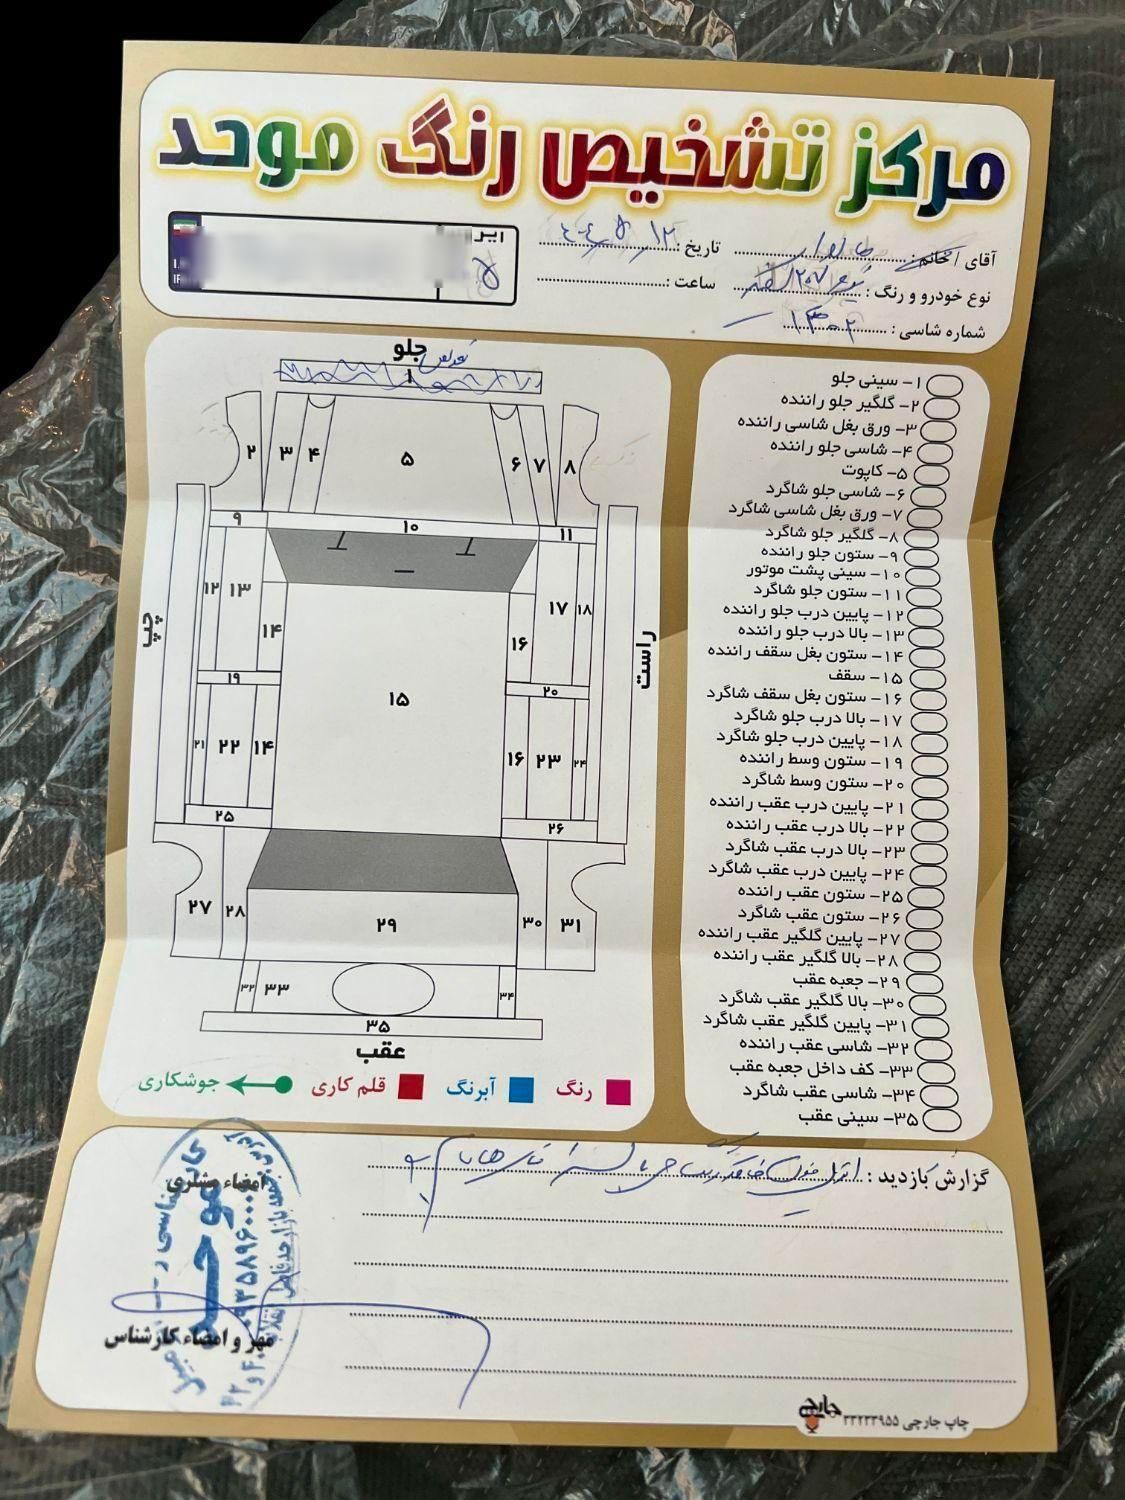 مرکز تشخیص رنگ موحد
آقای / خانم :
تاریخ : ۱۲
ایر
نوع خودرو و رنگ : ۲۰۷
ساعت :
شماره شاسی : ۱۴۰۲
جلو
تعویض
۱
۲ ۳ ۴ ۵ ۶ ۷ ۸
۹ ۱۰ ۱۱
۱۲ ۱۳ ۱۴ ۱۵ ۱۶ ۱۷ ۱۸
چپ
راست
۱۹ ۲۰
۲۱ ۲۲ ۱۴ ۱۶ ۲۳ ۲۴
۲۵ ۲۶
۲۷ ۲۸ ۲۹ ۳۰ ۳۱
۳۲ ۳۳ ۳۴
۳۵
عقب
رنگ
آبرنگ
قلم کاری
جوشکاری
۱- سینی جلو
۲- گلگیر جلو راننده
۳- ورق بغل شاسی راننده
۴- شاسی جلو راننده
۵- کاپوت
۶- شاسی جلو شاگرد
۷- ورق بغل شاسی شاگرد
۸- گلگیر جلو شاگرد
۹- ستون جلو راننده
۱۰- سینی پشت موتور
۱۱- ستون جلو شاگرد
۱۲- پایین درب جلو راننده
۱۳- بالا درب جلو راننده
۱۴- ستون بغل سقف راننده
۱۵- سقف
۱۶- ستون بغل سقف شاگرد
۱۷- بالا درب جلو شاگرد
۱۸- پایین درب جلو شاگرد
۱۹- ستون وسط راننده
۲۰- ستون وسط شاگرد
۲۱- پایین درب عقب راننده
۲۲- بالا درب عقب راننده
۲۳- بالا درب عقب شاگرد
۲۴- پایین درب عقب شاگرد
۲۵- ستون عقب راننده
۲۶- ستون عقب شاگرد
۲۷- پایین گلگیر عقب راننده
۲۸- بالا گلگیر عقب راننده
۲۹- جعبه عقب
۳۰- بالا گلگیر عقب شاگرد
۳۱- پایین گلگیر عقب شاگرد
۳۲- شاسی عقب راننده
۳۳- کف داخل جعبه عقب
۳۴- شاسی عقب شاگرد
۳۵- سینی عقب
گزارش بازدید :
امضاء مشتری
موحد
مهر و امضاء کارشناس
چاپ جارچی ۳۳۲۳۳۹۵۵
جارچی